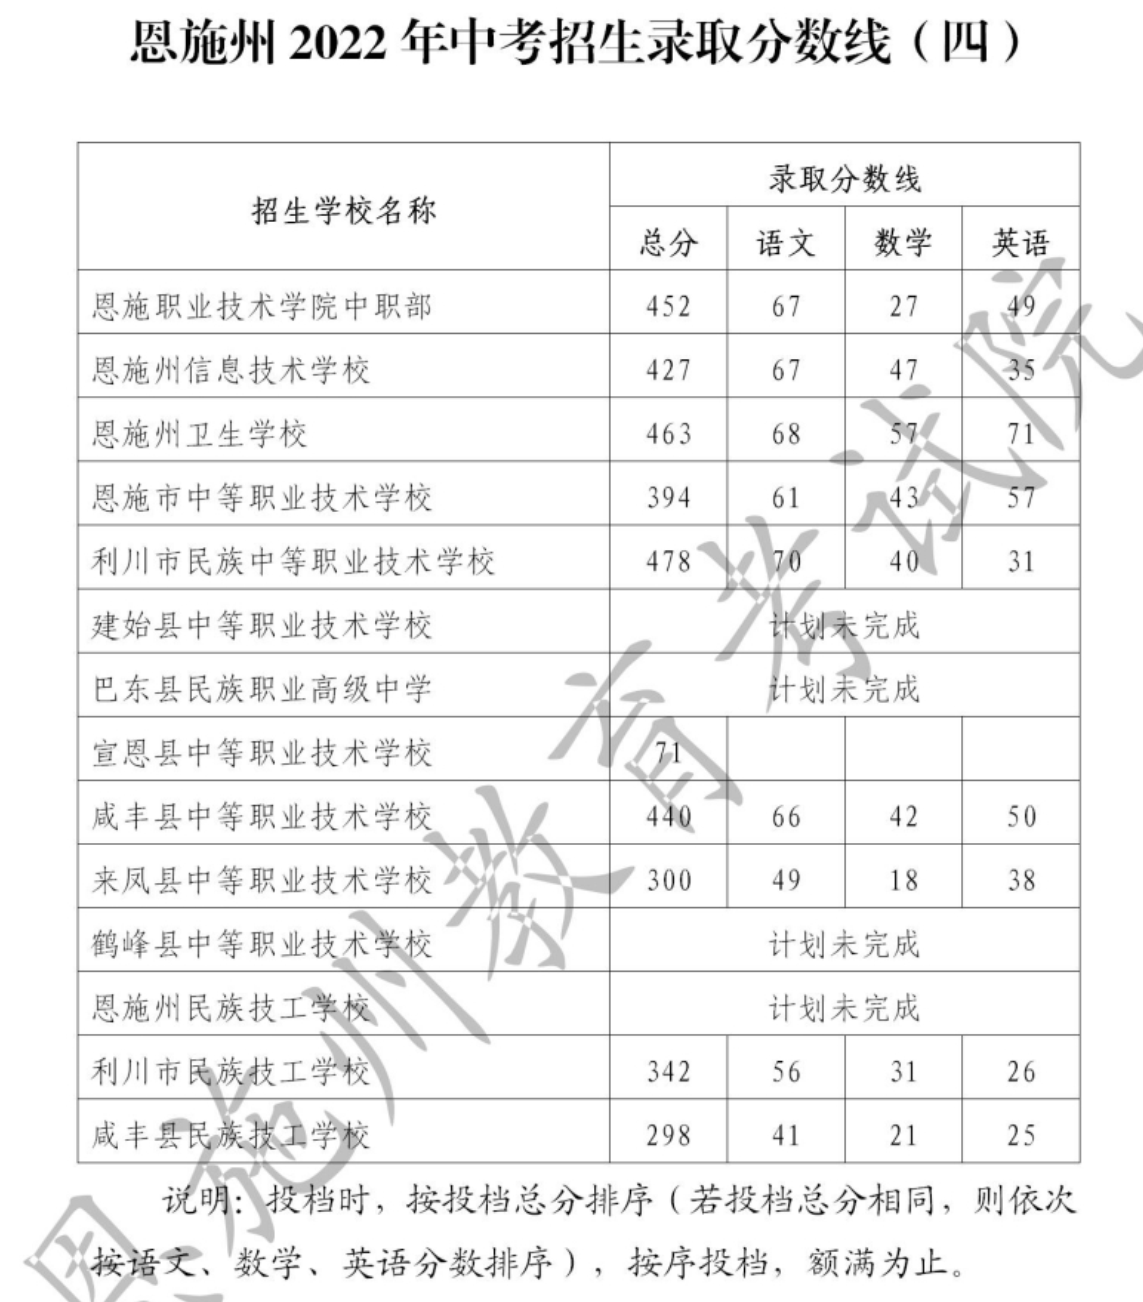 恩施州 2022 年中考招生录取分数线（四）
招生学校名称 录取分数线
总分 语文 数学 英语
恩施职业技术学院中职部 452 67 27 49
恩施州信息技术学校 427 67 47 35
恩施州卫生学校 463 68 57 71
恩施市中等职业技术学校 394 61 43 57
利川市民族中等职业技术学校 478 70 40 31
建始县中等职业技术学校 计划未完成
巴东县民族职业高级中学 计划未完成
宣恩县中等职业技术学校 71
咸丰县中等职业技术学校 440 66 42 50
来凤县中等职业技术学校 300 49 18 38
鹤峰县中等职业技术学校 计划未完成
恩施州民族技工学校 计划未完成
利川市民族技工学校 342 56 31 26
咸丰县民族技工学校 298 41 21 25
说明：投档时，按投档总分排序（若投档总分相同，则依次
按语文、数学、英语分数排序），按序投档，额满为止。
恩施州教育考试院